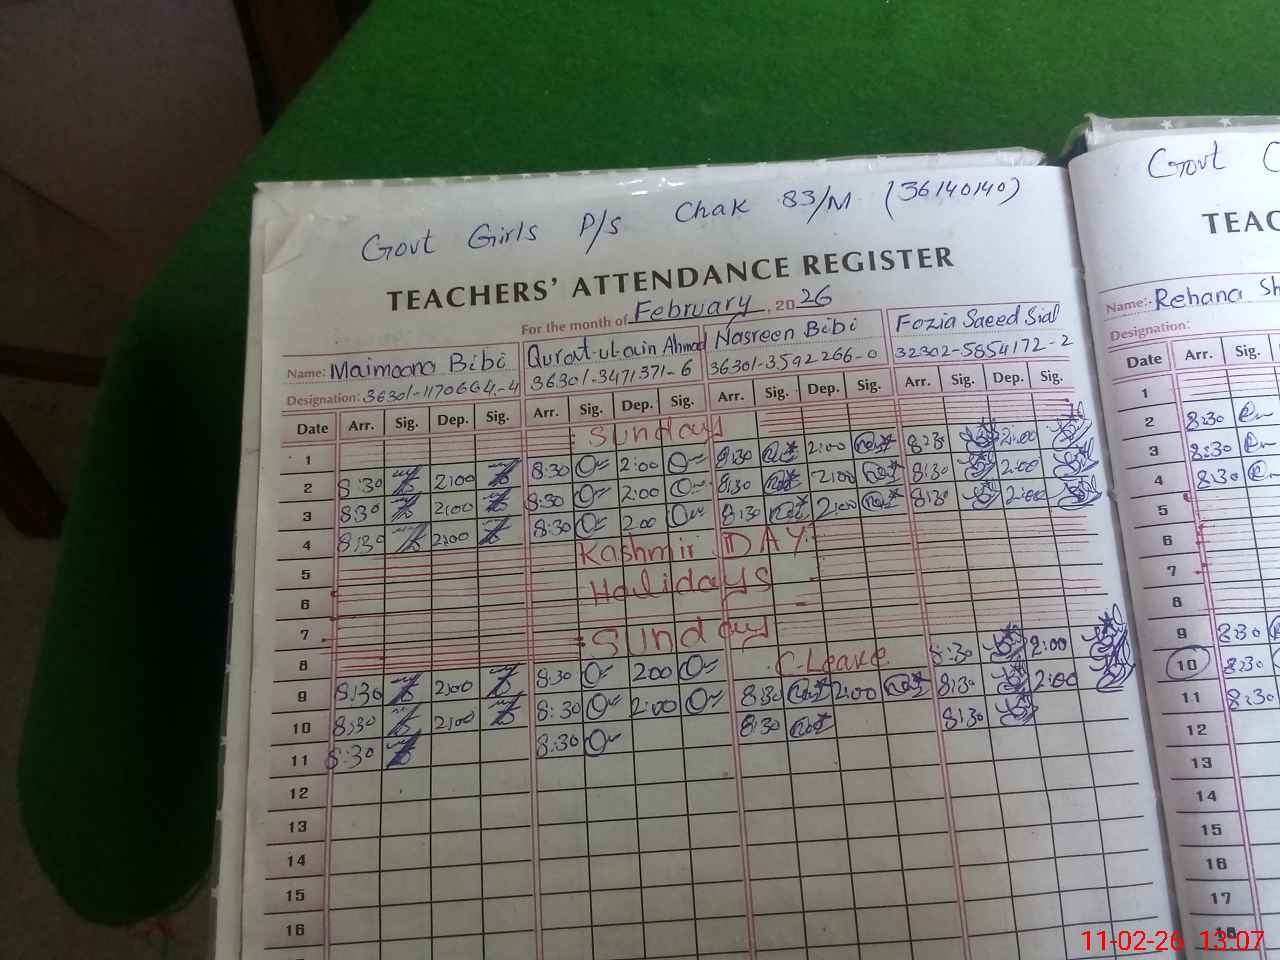 Govt Girls P/S Chak 83/M (36140140)
TEACHERS' ATTENDANCE REGISTER
For the month of February, 2026
Name: Maimoona Bibi Qurat-ul-ain Ahmad Nasreen Bibi Fozia Saeed Sial
Designation: 36301-1170664-4 36301-3471371-6 36301-3592266-0 32302-5854172-2
Date Arr. Sig. Dep. Sig. Arr. Sig. Dep. Sig. Arr. Sig. Dep. Sig. Arr. Sig. Dep. Sig.
1 Sunday
2 8:30 2:00 8:30 2:00 8:30 2:00 8:30 2:00
3 8:30 2:00 8:30 2:00 8:30 2:00 8:30 2:00
4 8:30 2:00 8:30 200 8:30 2:00 8:30 2:00
5 Kashmir DAY
6 Holidays
7
8 Sunday
9 8:30 2:00 8:30 200 C-Leave 8:30 2:00
10 8:30 2:00 8:30 2:00 8:30 2:00 8:30 2:00
11 8:30 8:30 8:30 8:30
12
13
14
15
16
Govt
TEAC
Name: Rehana Sh
Designation:
Date Arr. Sig.
1
2 8:30
3 8:30
4 8:30
5
6
7
8
9 8:30
10 8:30
11 8:30
12
13
14
15
16
17
18
11-02-26 13:07